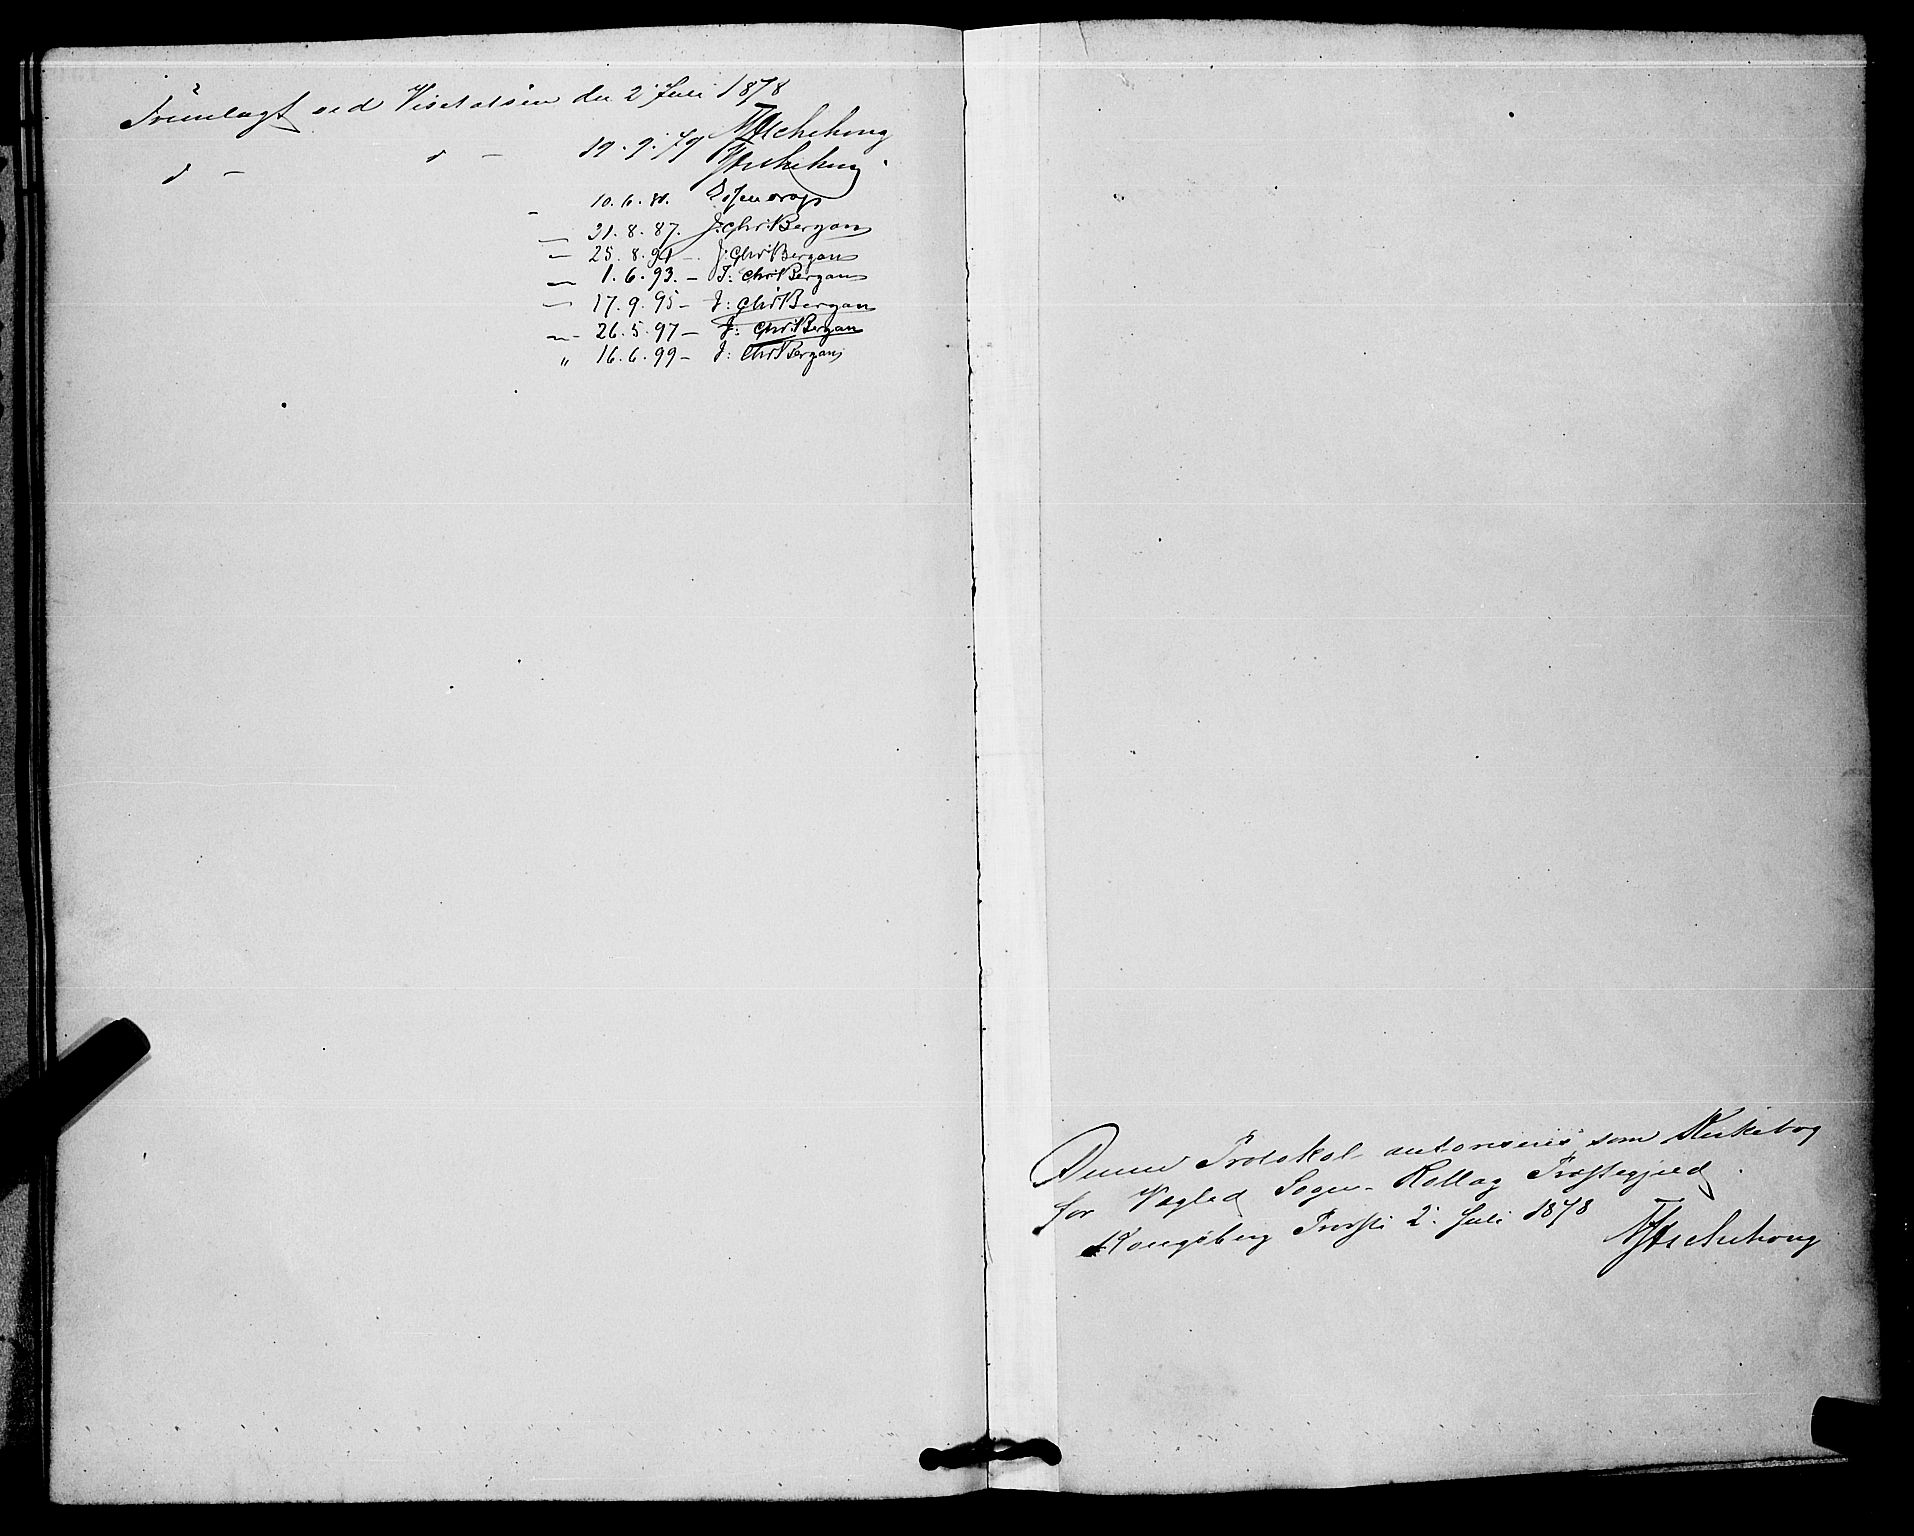 Fremlagt ved Visitatsen den 2 Juli 1878
NAschehoug
d - d - 19.9.79 NAschehoug
- 10.6.81.
- 31.8.87. J: Chr: Bergan
- 25.8.91 -. J: Chr: Bergan
- 1.6.93. - J: Chr: Bergan
- 17.9.95 - J: Chr: Bergan
- 26.5.97 - J: Chr: Bergan
„ 16.6.99 - J: Chr: Bergan
Denne Protokol autoriseres som Kirkebog
for Vegled Sogn - Rollag Præstegjeld.
Kongsberg Provsti 2 Juli 1878
NAschehoug